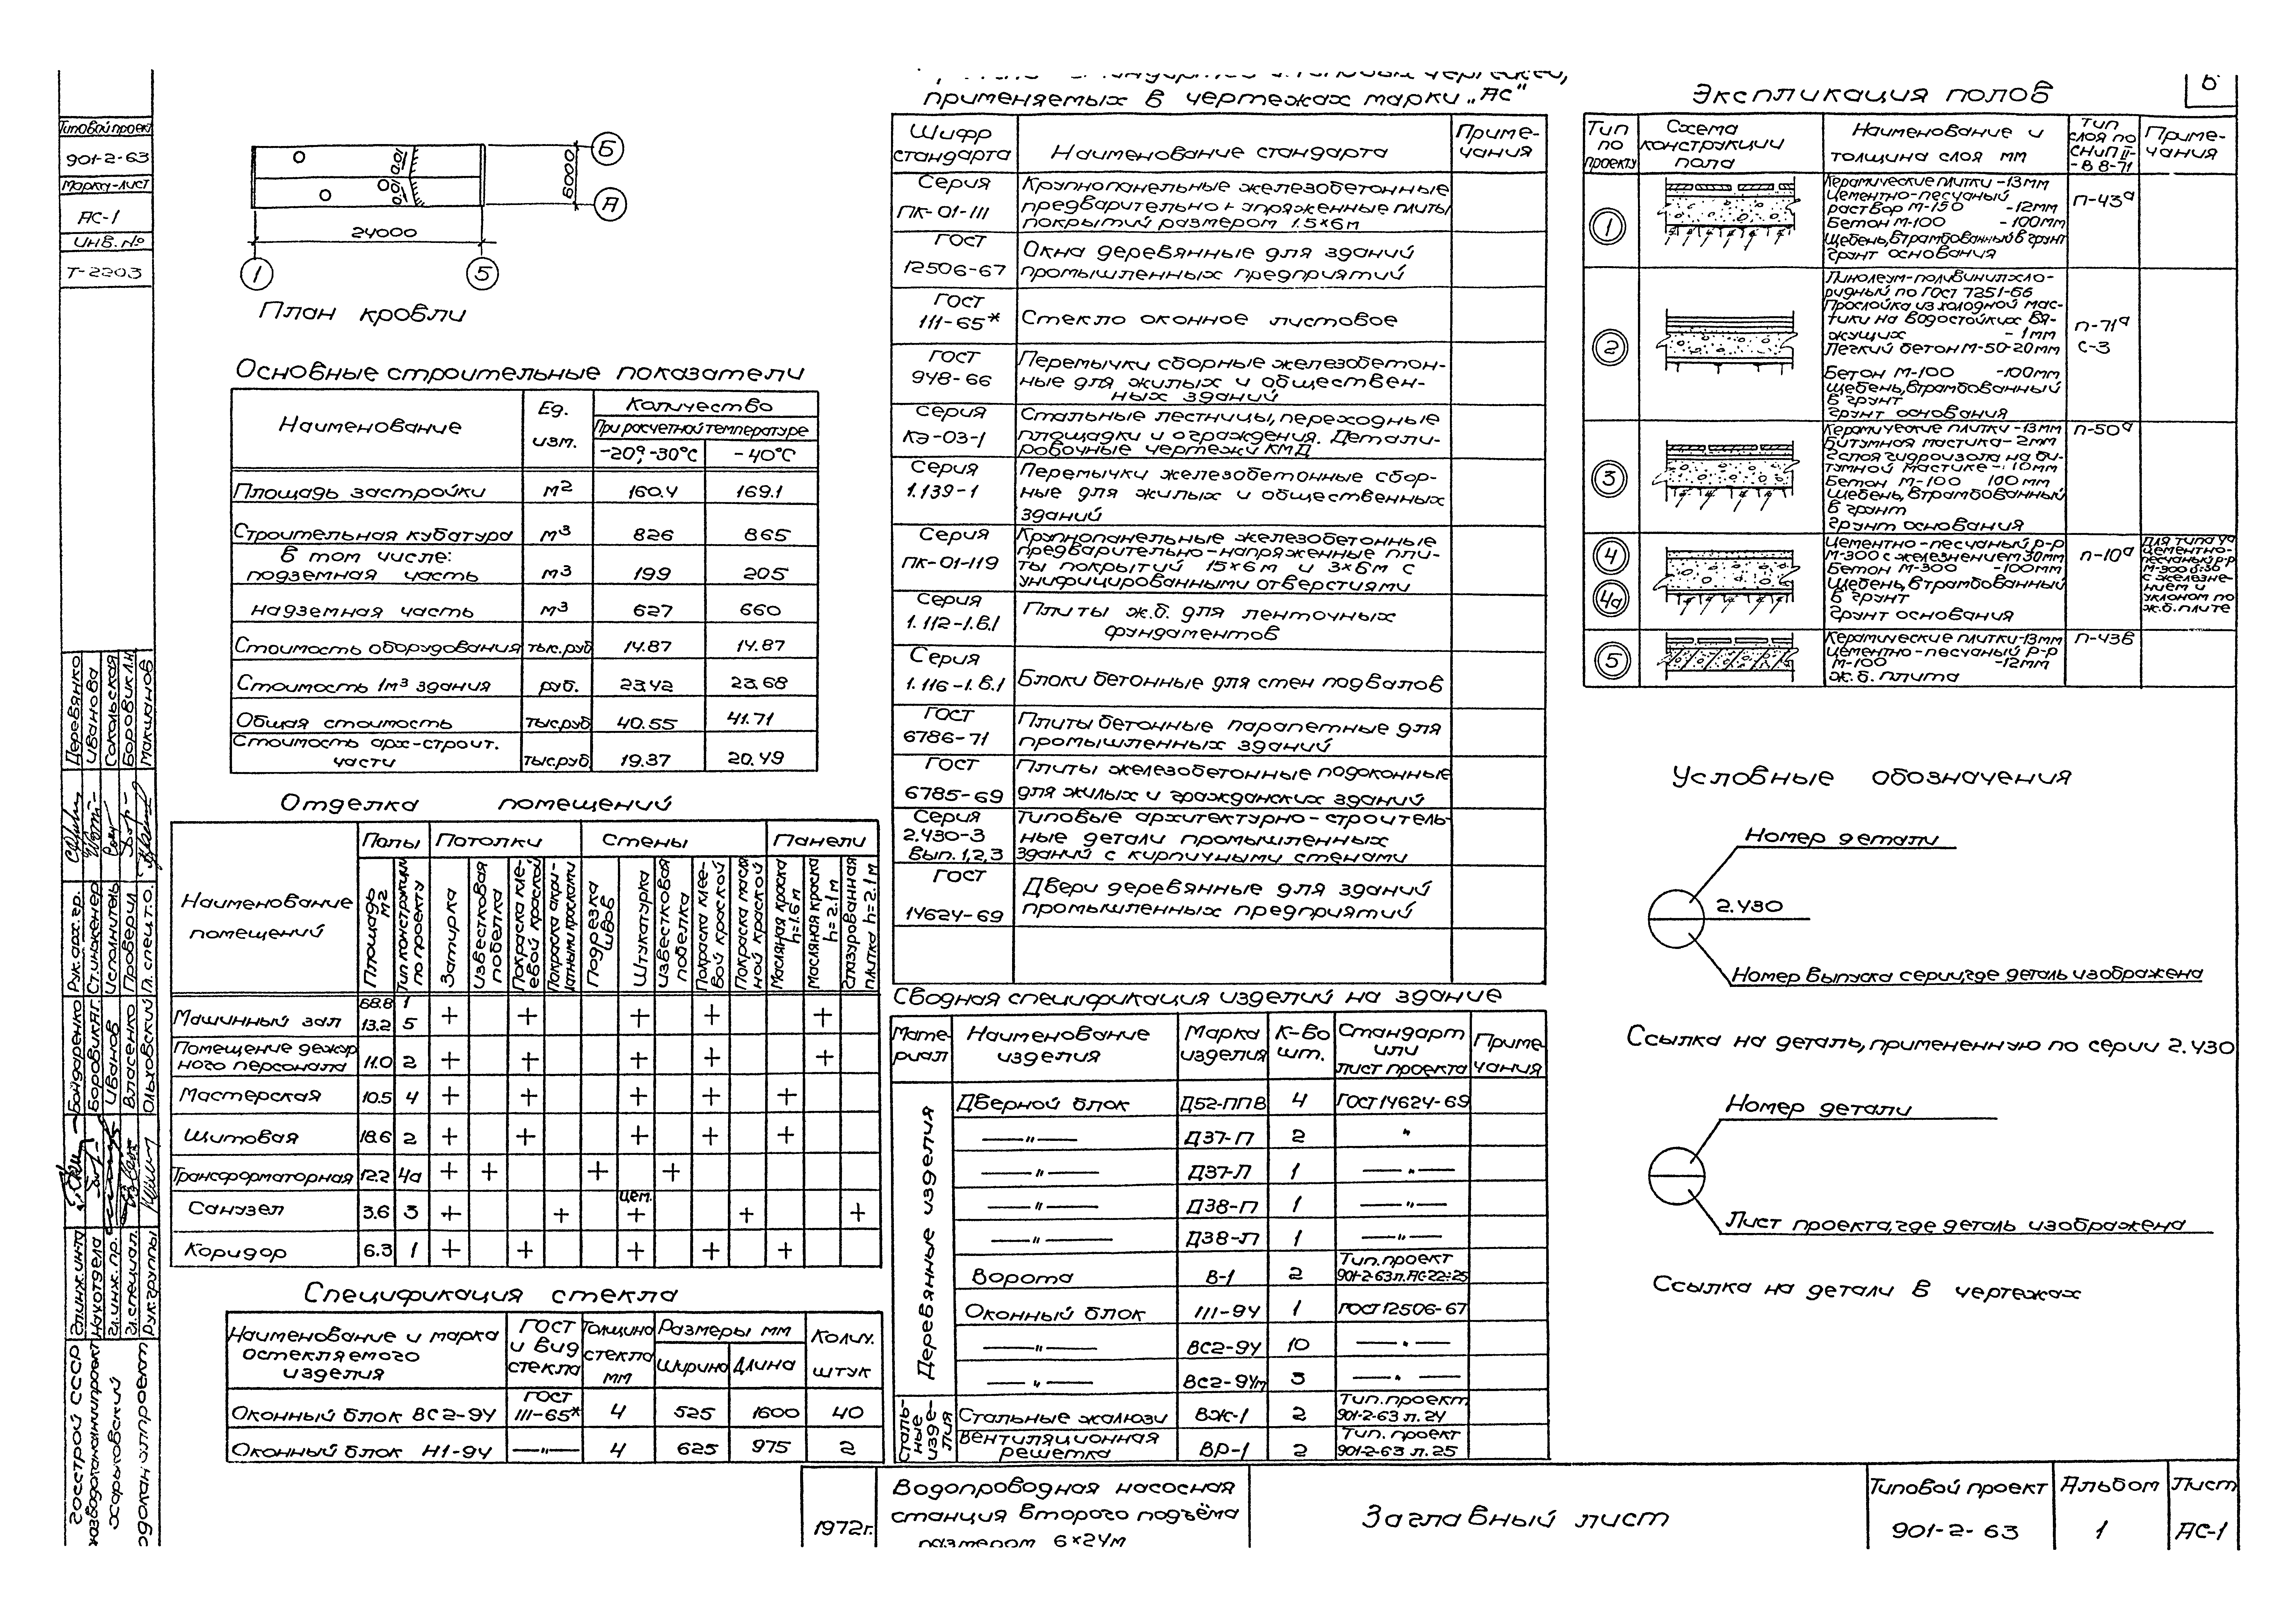 Типовой проект
901-2-63
Марка-лист
АС-1
Инв. №
Т-2203
0,01
0,01
Б
А
6000
24000
1
5
План кровли
Основные строительные показатели
Наименование
Ед. изм.
Количество
При расчетной температуре
-20°, -30°С
-40°С
Площадь застройки м2 160.4 169.1
Строительная кубатура м3 826 865
в том числе:
подземная часть м3 199 205
надземная часть м3 627 660
Стоимость оборудования тыс.руб 14.87 14.87
Стоимость 1м3 здания руб. 23.42 23.68
Общая стоимость тыс.руб 40.55 41.71
Стоимость арх-строит.
части тыс.руб 19.37 20.49
Отделка помещений
Наименование
помещений
Полы Потолки Стены Панели
Площадь м2
Тип конструкции по проекту
Затирка
Известковая побелка
Покраска клеевой краской
Покраска акрилатными красками
Подрезка швов
Штукатурка
Известковая побелка
Покраска клеевой краской
Покраска масляной краской
Масляная краска h=1.6м
Масляная краска h=2.1м
Глазурованная плитка h=2.1м
Машинный зал 68.8 1 + + + + +
13.2 5
Помещение дежур
ного персонала 11.0 2 + + + + +
Мастерская 10.5 4 + + + + +
Щитовая 18.6 2 + + + + +
Трансформаторная 12.2 4а + + + +
Санузел 3.6 3 + + цем. + + +
Коридор 6.3 1 + + + + +
Спецификация стекла
Наименование и марка
остекляемого
изделия
ГОСТ и вид стекла
Толщина стекла мм
Размеры мм
Ширина Длина
Колич. штук
Оконный блок ВС2-9У ГОСТ 111-65* 4 525 1600 40
Оконный блок Н1-9У —"— 4 625 975 2
применяемых в чертежах марки „АС"
Шифр стандарта
Наименование стандарта
Приме-
чания
Серия
ПК-01-111
Крупнопанельные железобетонные
предварительно напряженные плиты
покрытий размером 1.5×6м
ГОСТ
12506-67
Окна деревянные для зданий
промышленных предприятий
ГОСТ
111-65*
Стекло оконное листовое
ГОСТ
948-66
Перемычки сборные железобетон-
ные для жилых и обществен-
ных зданий
Серия
КЭ-03-1
Стальные лестницы, переходные
площадки и ограждения. Детали-
ровочные чертежи КМД
Серия
1.139-1
Перемычки железобетонные сбор-
ные для жилых и общественных
зданий
Серия
ПК-01-119
Крупнопанельные железобетонные
предварительно-напряженные пли-
ты покрытий 15×6м и 3×6м с
унифицированными отверстиями
Серия
1.112-1.в.1
Плиты ж.б. для ленточных
фундаментов
Серия
1.116-1.в.1
Блоки бетонные для стен подвалов
ГОСТ
6786-71
Плиты бетонные парапетные для
промышленных зданий
ГОСТ
6785-69
Плиты железобетонные подоконные
для жилых и гражданских зданий
Серия
2.430-3
Вып. 1,2,3
Типовые архитектурно-строитель-
ные детали промышленных
зданий с кирпичными стенами
ГОСТ
14624-69
Двери деревянные для зданий
промышленных предприятий
Сводная спецификация изделий на здание
Мате-
риал
Наименование
изделия
Марка
изделия
К-во
шт.
Стандарт
или
лист проекта
Приме
чания
Деревянные изделия
Дверной блок Д52-ППВ 4 ГОСТ 14624-69
—"— Д37-П 2 "
—"— Д37-Л 1 —"—
—"— Д38-П 1 —"—
—"— Д38-Л 1 —"—
Ворота В-1 2 Тип.проект
901-2-63 л.АС-22÷25
Оконный блок 111-9У 1 ГОСТ 12506-67
—"— ВС2-9У 10 —"—
—"— ВС2-9Ум 3 —"—
Сталь-
ные
изде-
лия
Стальные жалюзи ВЖ-1 2 Тип.проект
901-2-63 л.24
Вентиляционная
решетка ВР-1 2 Тип. проект
901-2-63 л.25
Экспликация полов
6
Тип
по
проекту
Схема
конструкции
пола
Наименование и
толщина слоя мм
Тип
слоя по
СНиП II-
-В 8-71
Приме-
чания
1
Керамические плитки -13мм
Цементно-песчаный
раствор М-150 -12мм
Бетон М-100 -100мм
Щебень, втрамбованный в грунт
Грунт основания
П-43а
2
Линолеум-поливинилхло-
ридный по ГОСТ 7251-66
Прослойка из холодной мас-
тики на водостойких вя-
жущих - 1мм
Легкий бетон М-50-20мм
Бетон М-100 -100мм
Щебень, втрамбованный
в грунт
Грунт основания
П-71а
С-3
3
Керамические плитки -13мм
Битумная мастика - 2мм
2 слоя гидроизола на би-
тумной мастике - 10мм
Бетон М-100 100мм
Щебень, втрамбованный
в грунт
Грунт основания
П-50а
4
4а
Цементно-песчаный р-р
М-300 с железнением 30мм
Бетон М-300 -100мм
Щебень, втрамбованный
в грунт
Грунт основания
П-10а
Для типа 4а
цементно-
песчаный р-р
М-300 δ=30
с железне-
нием и
уклоном по
ж.б. плите
5
Керамические плитки-13мм
Цементно-песчаный р-р
М-100 -12мм
ж.б. плита
П-43в
Условные обозначения
Номер детали
2.430
Номер выпуска серии, где деталь изображена
Ссылка на деталь, примененную по серии 2.430
Номер детали
Лист проекта, где деталь изображена
Ссылка на детали в чертежах
Деревянко
Иванова
Сокольская
Боровик Л.Н.
Макшанов
Рук.арх.гр.
Ст.инженер
Исполнитель
Проверил
Гл. спец. Т.О.
Бойдаренко
Боровик А.Г.
Иванов
Власенко
Ольховский
Гл.инж.ин-та
Нач.отдела
Гл.инж.пр.
Гл.специал.
Рук.группы
Госстрой СССР
Харьковский
1972г.
Водопроводная насосная
станция второго подъёма
размером 6×24м
Заглавный лист
Типовой проект
901-2-63
Альбом
1
Лист
АС-1